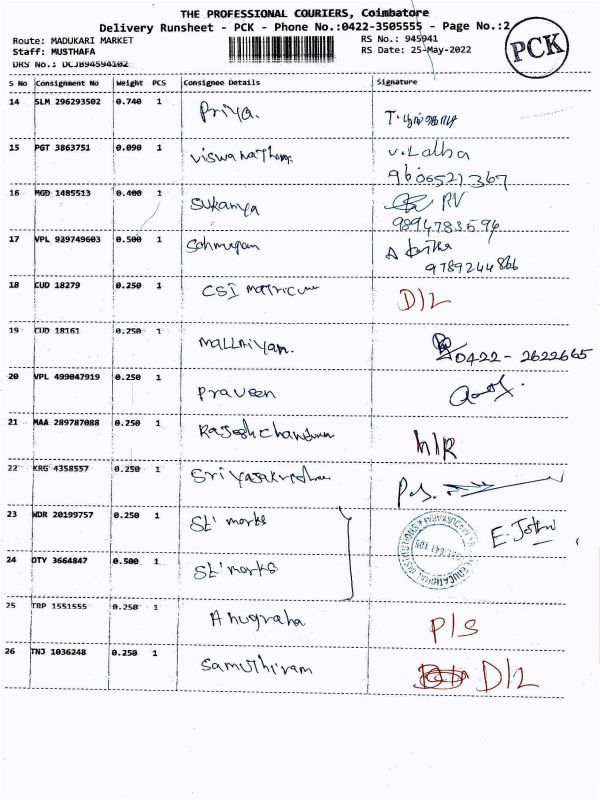 THE PROFESSIONAL COURIERS, Coimbatore
Delivery Runsheet - PCK - Phone No.:0422-3505555 - Page No.:2
Route: MADUKARI MARKET RS No.: 945941
Staff: MUSTHAFA RS Date: 25-May-2022
DRS No.: DCJB94594102
PCK
S No Consignment No Weight PCS Consignee Details Signature
14 SLM 296293502 0.740 1 Priya.
15 PGT 3863751 0.090 1 Viswanathan V. Lalha
9606521367
16 MGD 1485513 0.400 1 Sukanya RV
9894783594
17 VPL 939749603 0.500 1 Sohmugam
9789244866
18 CUD 18279 0.250 1 CSI D/L
19 CUD 18161 0.250 1 Mallaiyan. 0422-2622665
20 VPL 499047919 0.250 1 Praveen
21 MAA 289787088 0.250 1 N/R
22 KRG 4358557 0.250 1
23 WDR 20199757 0.250 1 St' marks E. John
24 OTY 3664847 0.500 1 St' marks
25 TRP 1551555 0.250 1 Anugraha P/S
26 TNJ 1036248 0.250 1 Samuthiram D/L